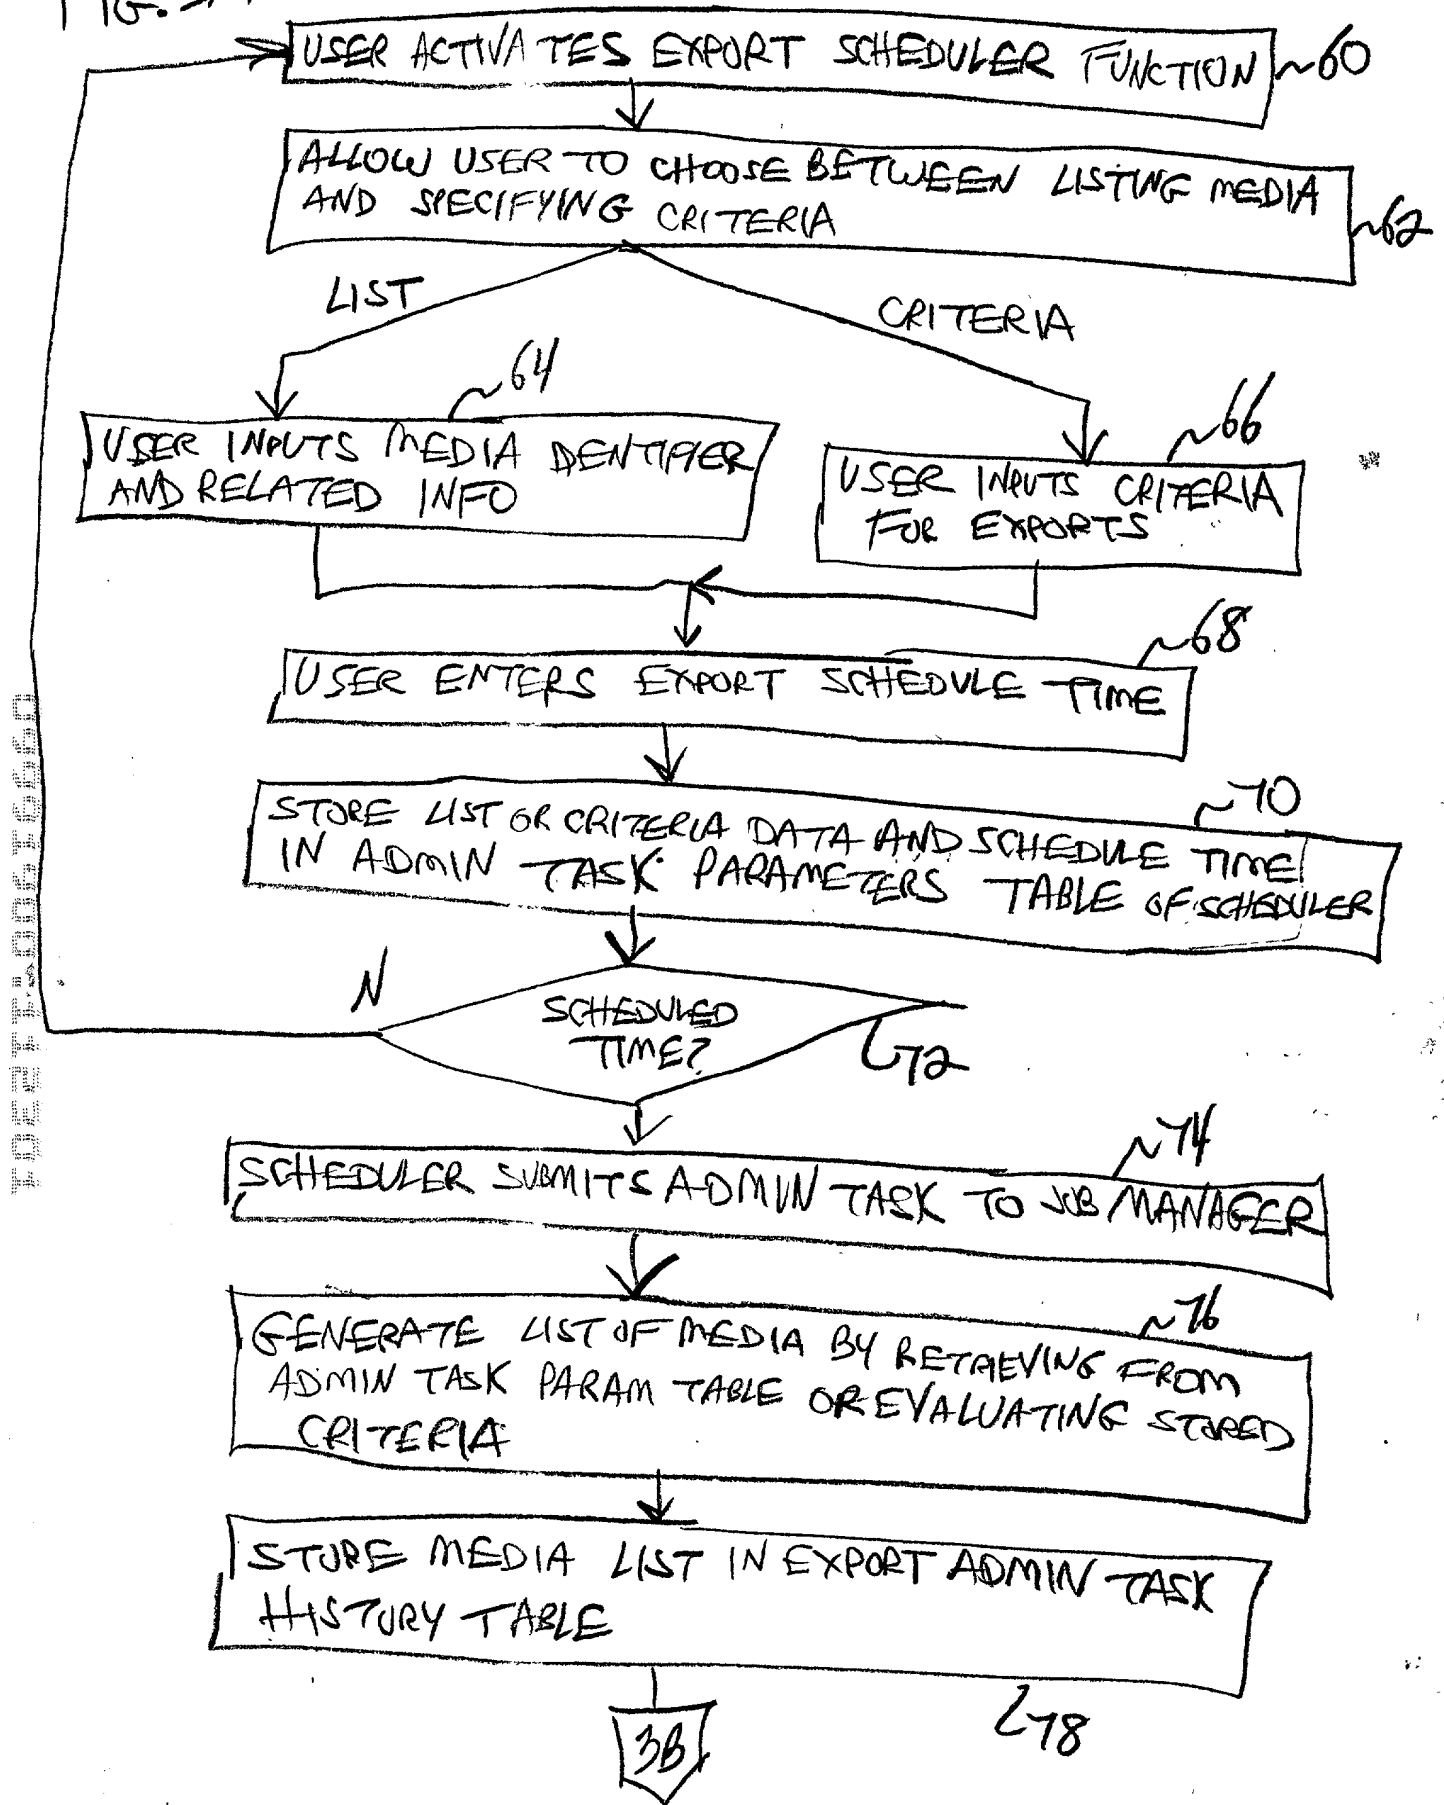 FIG.
USER ACTIVATES EXPORT SCHEDULER FUNCTION
~60
ALLOW USER TO CHOOSE BETWEEN LISTING MEDIA
AND SPECIFYING CRITERIA
~62
LIST
CRITERIA
~64
USER INPUTS MEDIA IDENTIFIER
AND RELATED INFO
~66
USER INPUTS CRITERIA
FOR EXPORTS
~68
USER ENTERS EXPORT SCHEDULE TIME
~70
STORE LIST OR CRITERIA DATA AND SCHEDULE TIME
IN ADMIN TASK PARAMETERS TABLE OF SCHEDULER
N
SCHEDULED
TIME?
72
~74
SCHEDULER SUBMITS ADMIN TASK TO JOB MANAGER
~76
GENERATE LIST OF MEDIA BY RETRIEVING FROM
ADMIN TASK PARAM TABLE OR EVALUATING STORED
CRITERIA
STORE MEDIA LIST IN EXPORT ADMIN TASK
HISTORY TABLE
78
3B